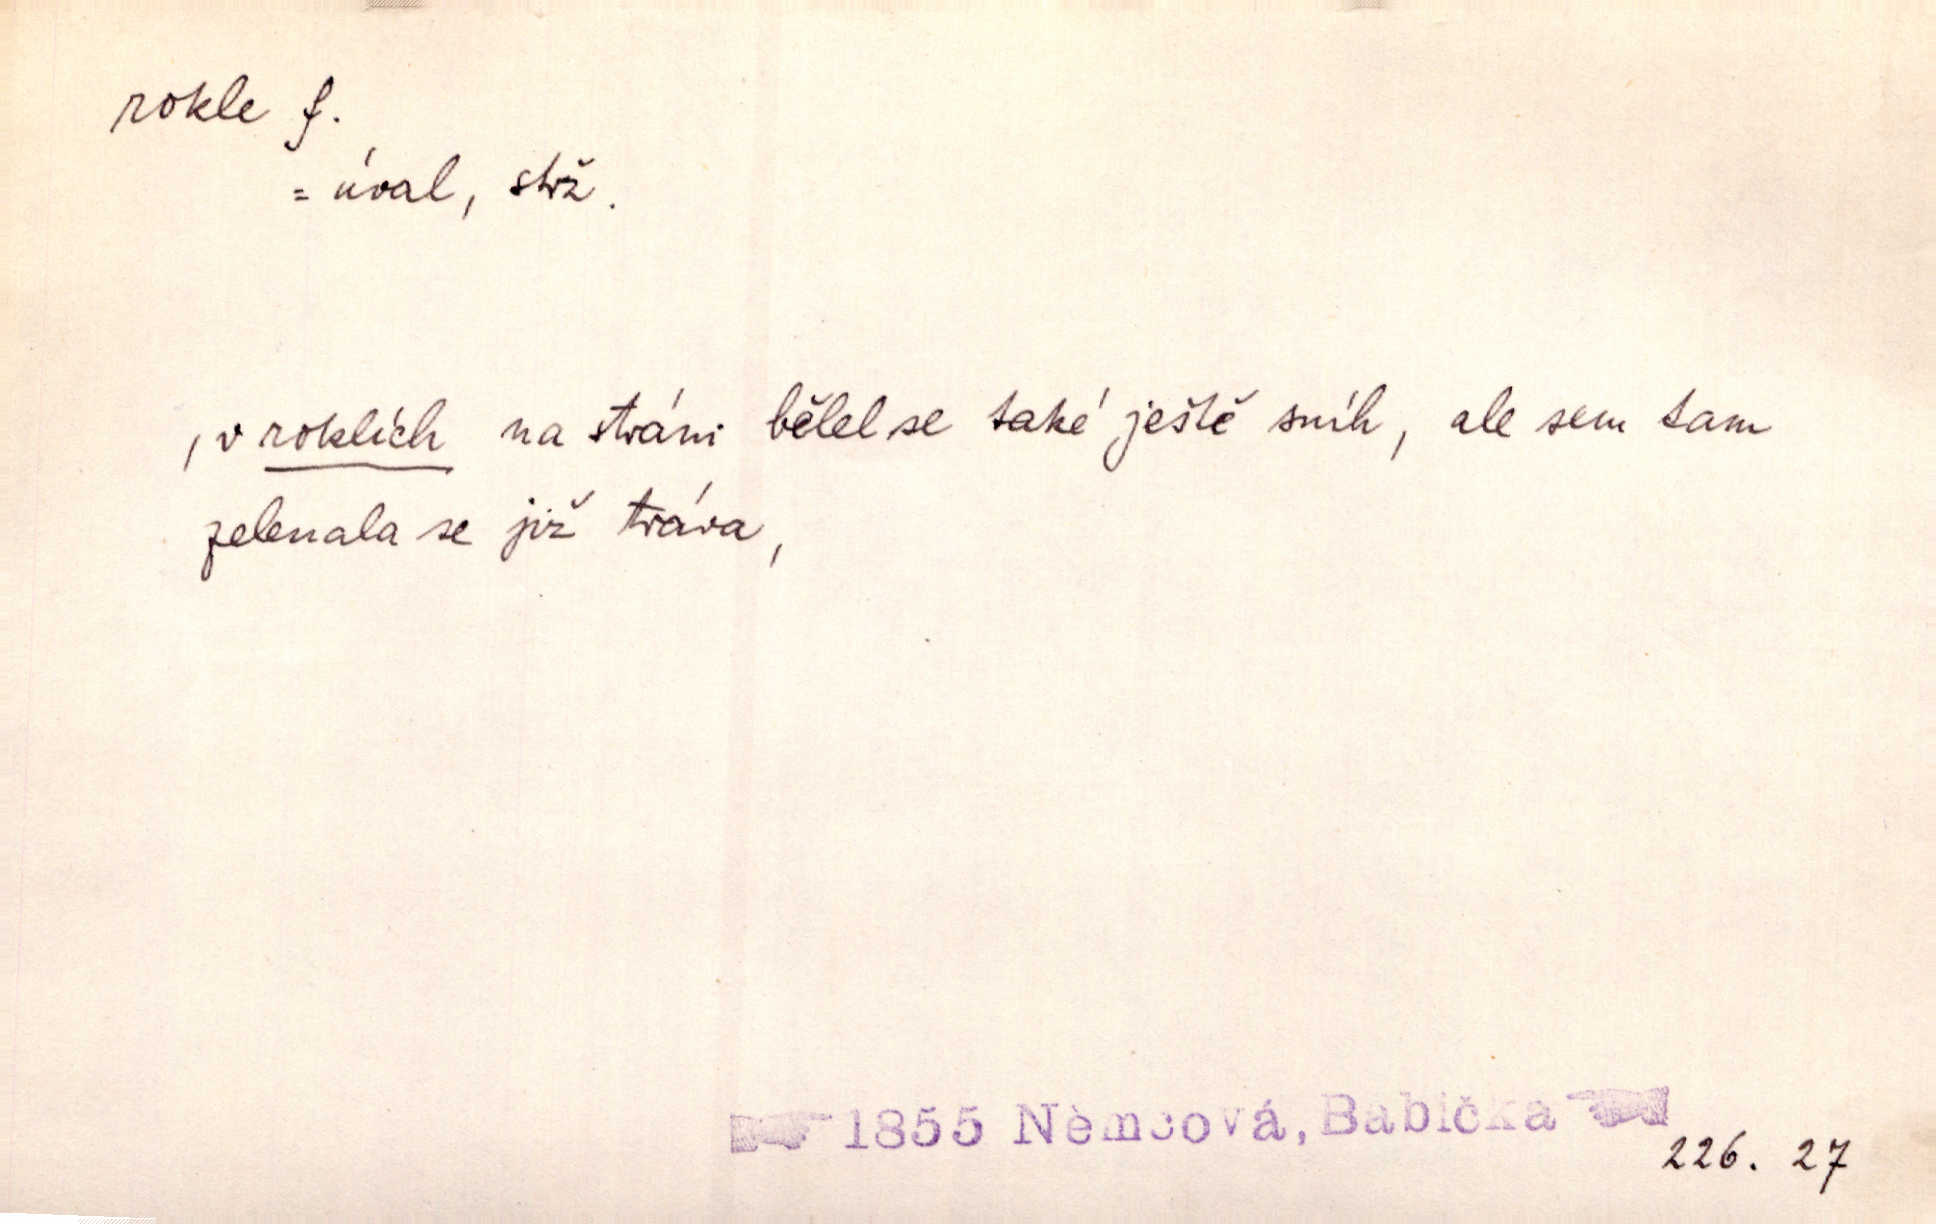 rokle f.
= úval, strž.
, v roklích na stráni bělel se také ještě sníh, ale sem tam
zelenala se již tráva,
1855 Němcová, Babička
226. 27